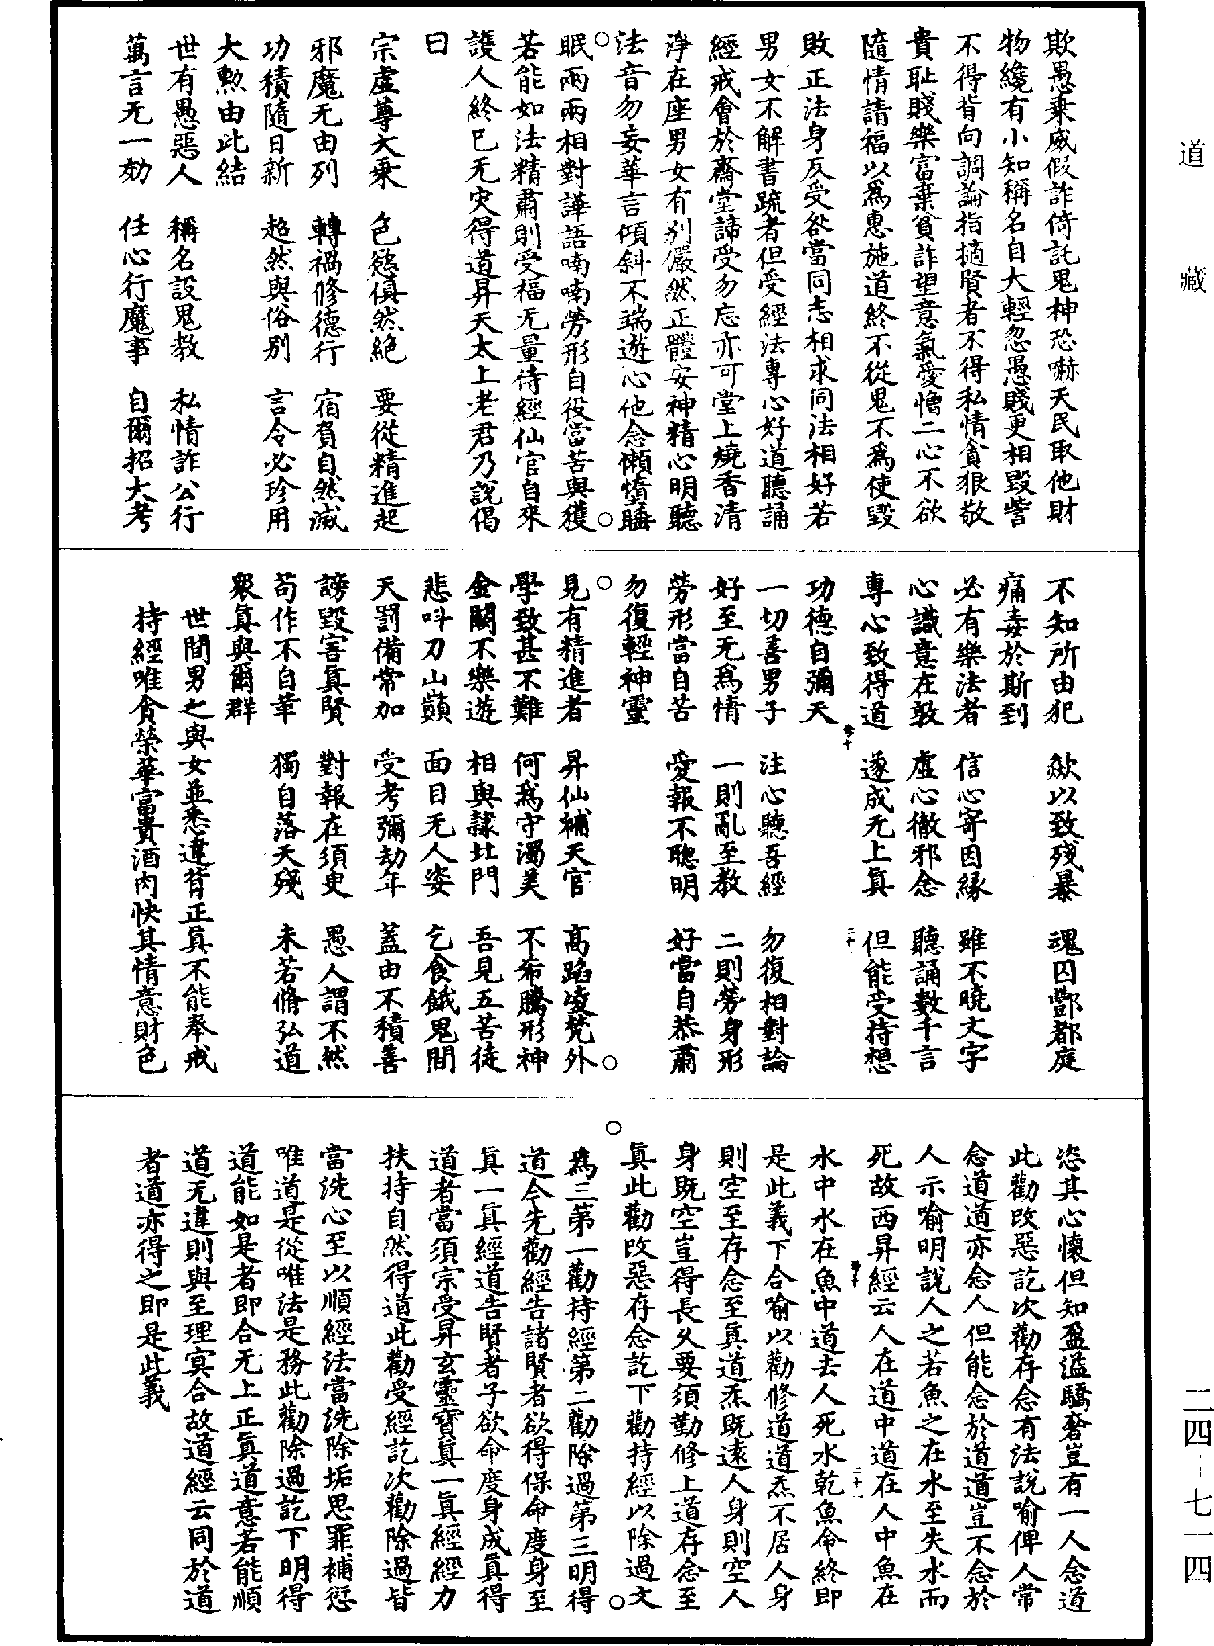 道藏
欺愚乘威假詐倚託鬼神恐嚇天民取他財
物纔有小知稱名自大輕忽愚賤更相毀訾
不得背向調論指擿賢者不得私情貪狠敬
貴恥賤樂富棄貧詐望意氣愛憎二心不欲
隨情請福以為惠施道終不從鬼不為使毀
敗正法身反受咎當同志相求同法相好若
男女不解書疏者但受經法專心好道聽誦
經戒會於齋堂諦受勿忘亦可堂上燒香清
淨在座男女有別儼然正體安神精心明聽
法音勿妄華言傾斜不端遊心他念懶惰睡
眠兩兩相對譁語喃喃勞形自役當苦與穫
若能如法精肅則受福无量侍經仙官自來
護人終已无灾得道昇天太上老君乃說偈
曰
宗虛尊大乘 色慾傎然絕 要從精進起
邪魔无由列 轉禍修德行 宿負自然滅
功積隨日新 超然與俗別 言令必珍用
大勲由此結
世有愚惡人 稱名設鬼教 私情詐公行
萬言无一効 任心行魔事 自爾招大考
不知所由犯 歘以致殘暴 魂囚酆都庭
痛毒於斯到
必有樂法者 信心寄因緣 雖不曉文字
心識意在殼 虛心徹邪念 聽誦數千言
專心致得道 遂成无上真 但能受持想
功德自彌天
一切善男子 注心聽吾經 勿復相對論
好至无為情 一則亂至教 二則勞身形
勞形當自苦 愛報不聰明 好當自恭肅
勿復輕神靈
見有精進者 昇仙補天官 高蹈凌梵外
學致甚不難 何為守濁美 不希騰形神
金闕不樂遊 相與隷北門 吾見五苦徒
悲叫刀山巔 面目无人姿 乞食餓鬼間
天罰備常加 受考彌劫年 蓋由不積善
謗毀害真賢 對報在須臾 愚人謂不然
苟作不自革 獨自落天殘 未若脩弘道
眾真與爾群
世間男之與女並悉違背正真不能奉戒
持經唯貪榮華富貴酒肉快其情意財色
恣其心懷但知盈溢驕奢豈有一人念道
此勸改惡訖次勸存念有法說喻俾人常
念道道亦念人但能念於道道豈不念於
人示喻明說人之若魚之在水至失水而
死故西昇經云人在道中道在人中魚在
水中水在魚中道去人死水乾魚命終即
是此義下合喻以勸修道道炁不居人身
則空至存念至真道炁既遠人身則空人
身既空豈得長久要須勤修上道存念至
真此勸改惡存念訖下勸持經以除過文
為三第一勸持經第二勸除過第三明得
道今先勸經告諸賢者欲得保命度身至
真一真經道告賢者子欲命度身成真得
道者當須宗受昇玄靈寶真一真經經力
扶持自然得道此勸受經訖次勸除過皆
當洗心至以順經法當洗除垢思罪補愆
唯道是從唯法是務此勸除過訖下明得
道能如是者即合无上正真道意若能順
道无違則與至理冥合故道經云同於道
者道亦得之即是此義
二四-七一四